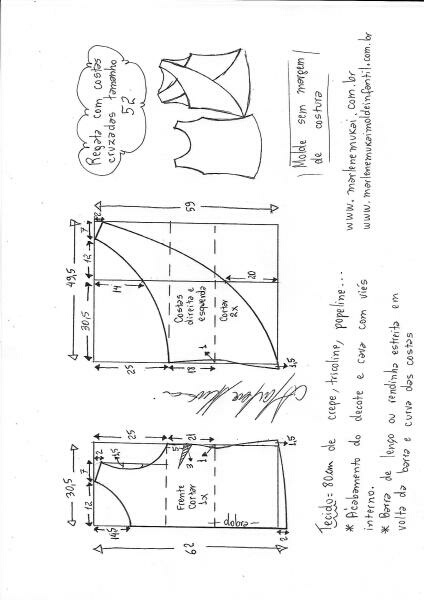 Regata com costas
cruzadas tamanho
52.
Molde sem margem
de costura
www.marlenemukai.com.br
www.marlenemukaimoldeinfantil.com.br
59
49,5
7
12
30,5
2
14
20
Costas
direita e
esquerda
Cortar
2x
1
25
18
1,5
62
30,5
7
12
2
1,5
14,5
25
21
5
3
1
Frente
Cortar
1x
dobra
1,5
2
Tecido= 80cm de crepe, tricoline, popeline...
* Acabamento do decote e cava com viés
interno.
* Barra de lenço ou rendinha estreita em
volta da barra e curva das costas